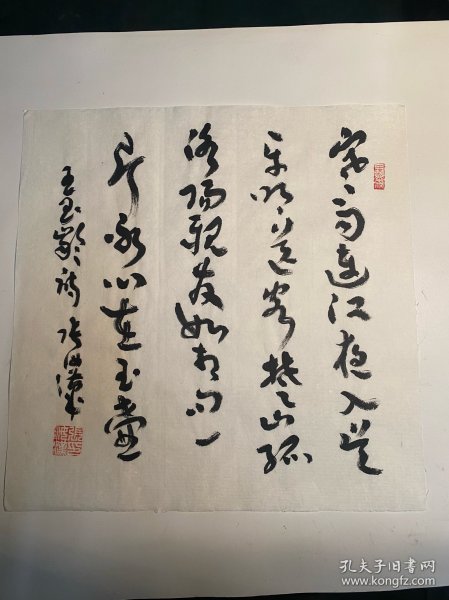 寒雨连江夜入吴
平明送客楚山孤
洛阳亲友如相问一
片冰心在玉壶
王昌龄诗 张海
孔夫子旧书网
www.kongfz.com